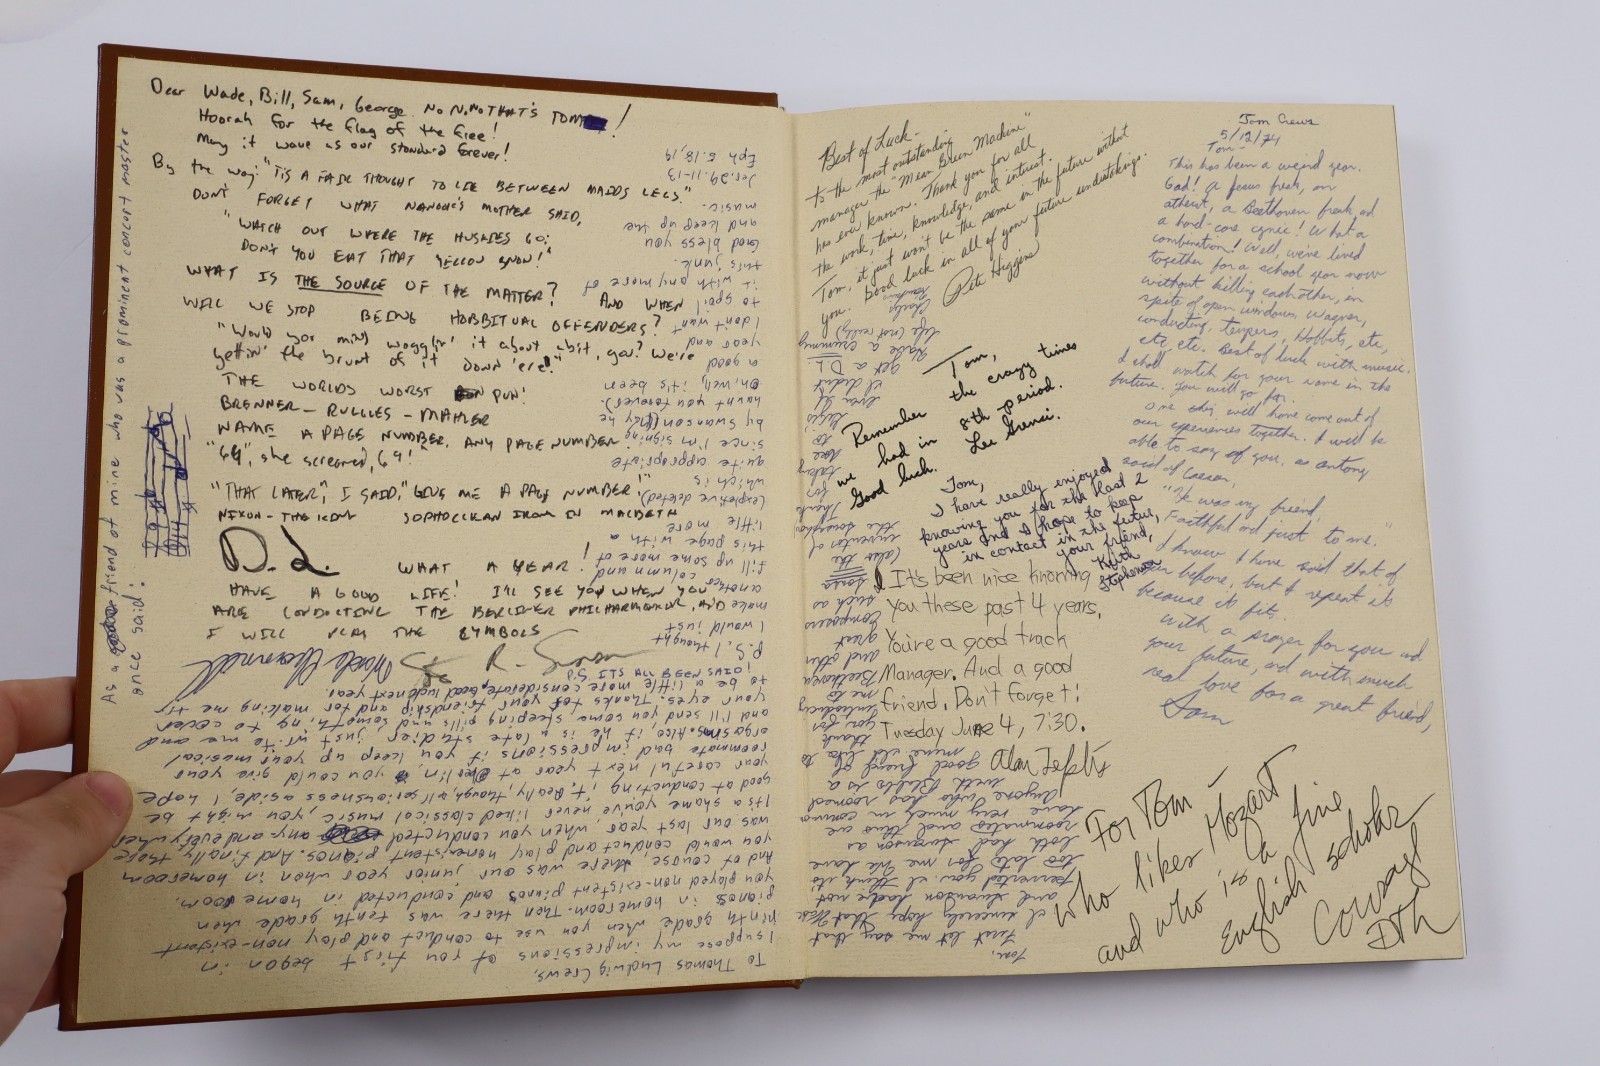 Dear Wade, Bill, Sam, George No No No THAT'S TOM !
Hoorah for the flag of the free!
May it wave as our standard forever!
By the way: "TIS A FAIR THOUGHT TO LIE BETWEEN MAIDS LEGS".
DON'T FORGET WHAT NANOOK'S MOTHER SAID,
"WATCH OUT WHERE THE HUSKIES GO;
DON'T YOU EAT THAT YELLOW SNOW!"
WHAT IS THE SOURCE OF THE MATTER? AND WHEN
WILL WE STOP BEING HOBBITUAL OFFENDERS?
"Would you mind wagglin' it about abit, guv? We're
gettin' the brunt of it down 'ere!"
THE WORLDS WORST PUN!
BRENNER - RUGGLES - MAHLER
NAME A PAGE NUMBER, ANY PAGE NUMBER
"69", she screamed, 69!"
"THAT LATER", I SAID, "GIVE ME A PAGE NUMBER!"
NIXON - THE
SOPHOCLEAN IRONY IN MACBETH
D.L. WHAT A YEAR!
HAVE A GOOD LIFE! I'LL SEE YOU WHEN YOU
ARE CONDUCTING THE BERLINER PHILHARMONIK, AND
I WILL PLAY THE CYMBOLS
P.S. ITS ALL BEEN SAID;
As a friend of mine who was a prominent concert master
once said:
P.S. I thought
I would just
make
another column and
fill up some more of
this page with a
little more
(expletive deleted)
which is
quite appropriate
since I'm signing
by Swanson (May he
haunt you forever).
Oh, well, it's been
a good
year and
I don't want
to spoil
it with any more of
this junk.
God bless you
and keep up the
music.
Jer. 29:11-13
Eph 5:18,19
To Thomas Ludwig Crews,
I suppose my impressions of you first began in
ninth grade when you use to conduct and play non-existent
pianos in homeroom. Then there was tenth grade when
you played non-existent pianos and conducted in home room.
And of course there was our junior year when in homeroom
you would conduct and play nonexistent pianos. And finally, there
was our last year, when you conducted any and everywhere
It's a shame you've never liked classical music, you might be
good at conducting it. Really, though, all seriousness aside, I hope
your careful next year at Oberlin, you could give your
roommate bad impressions if you keep up your musical
orgasms. Also, if he is a late studier, just write me and
and I'll send you some sleeping pills and something to cover
your eyes. Thanks for your friendship and for making me try
to be a little more considerate. Good luck next year.
Best of Luck -
To the most outstanding
manager the "Mean Green Machine"
has ever known. Thank you for all
the work, time, knowledge, and interest.
Tom, it just won't be the same in the future without
you. Good luck in all of your future undertakings.
Pete Higgins
Tom,
Remember the crazy times
we had in 8th period.
Good luck. Lee
Tom,
I have really enjoyed
knowing you for the last 2
years and I hope to keep
in contact in the future,
your friend,
Keith
Stephenson
It's been nice knowing
you these past 4 years.
You're a good track
Manager. And a good
friend. Don't forget!
Tuesday June 4, 7:30.
Alan
For Tom -
who likes Mozart
and who is a fine
English scholar
Courage!
DTH
Tom Crews
5/12/74
Tom -
This has been a weird year.
God! A Jesus freak, an
atheist, a Beethoven freak and
a hard-core cynic! What a
combination! Well, we've lived
together for a school year now
without killing each other, in
spite of open windows, Wagner,
conducting, tempers, Hobbits, etc,
etc, etc. Best of luck with music.
I shall watch for your name in the
future. You will go far.
One thing will have come out of
our experiences together. I will be
able to say of you, as Antony
said of Caesar,
"He was my friend,
Faithful and just to me."
I know I have said that of
you before, but I repeat it
because it fits.
With a prayer for you and
your future, and with much
real love for a great friend,
Sam
Tom,
First let me say that
I sincerely hope that Wade
and Swanson have not
perverted you. I think it's
too late for me. We have
both had Swanson as
roommates and thus we
have very much in common
Anyone who has roomed
with Bilbo is a
good friend of
mine. I'd like to
thank
you for
introducing
me to
Beethoven
and other
great
composers
such as
Sousa
(also the
inventor of
the sousaphone)
Thanks
for
taking
me to
even if
I didn't
get a D.L.
Have a crummy
life (not really)